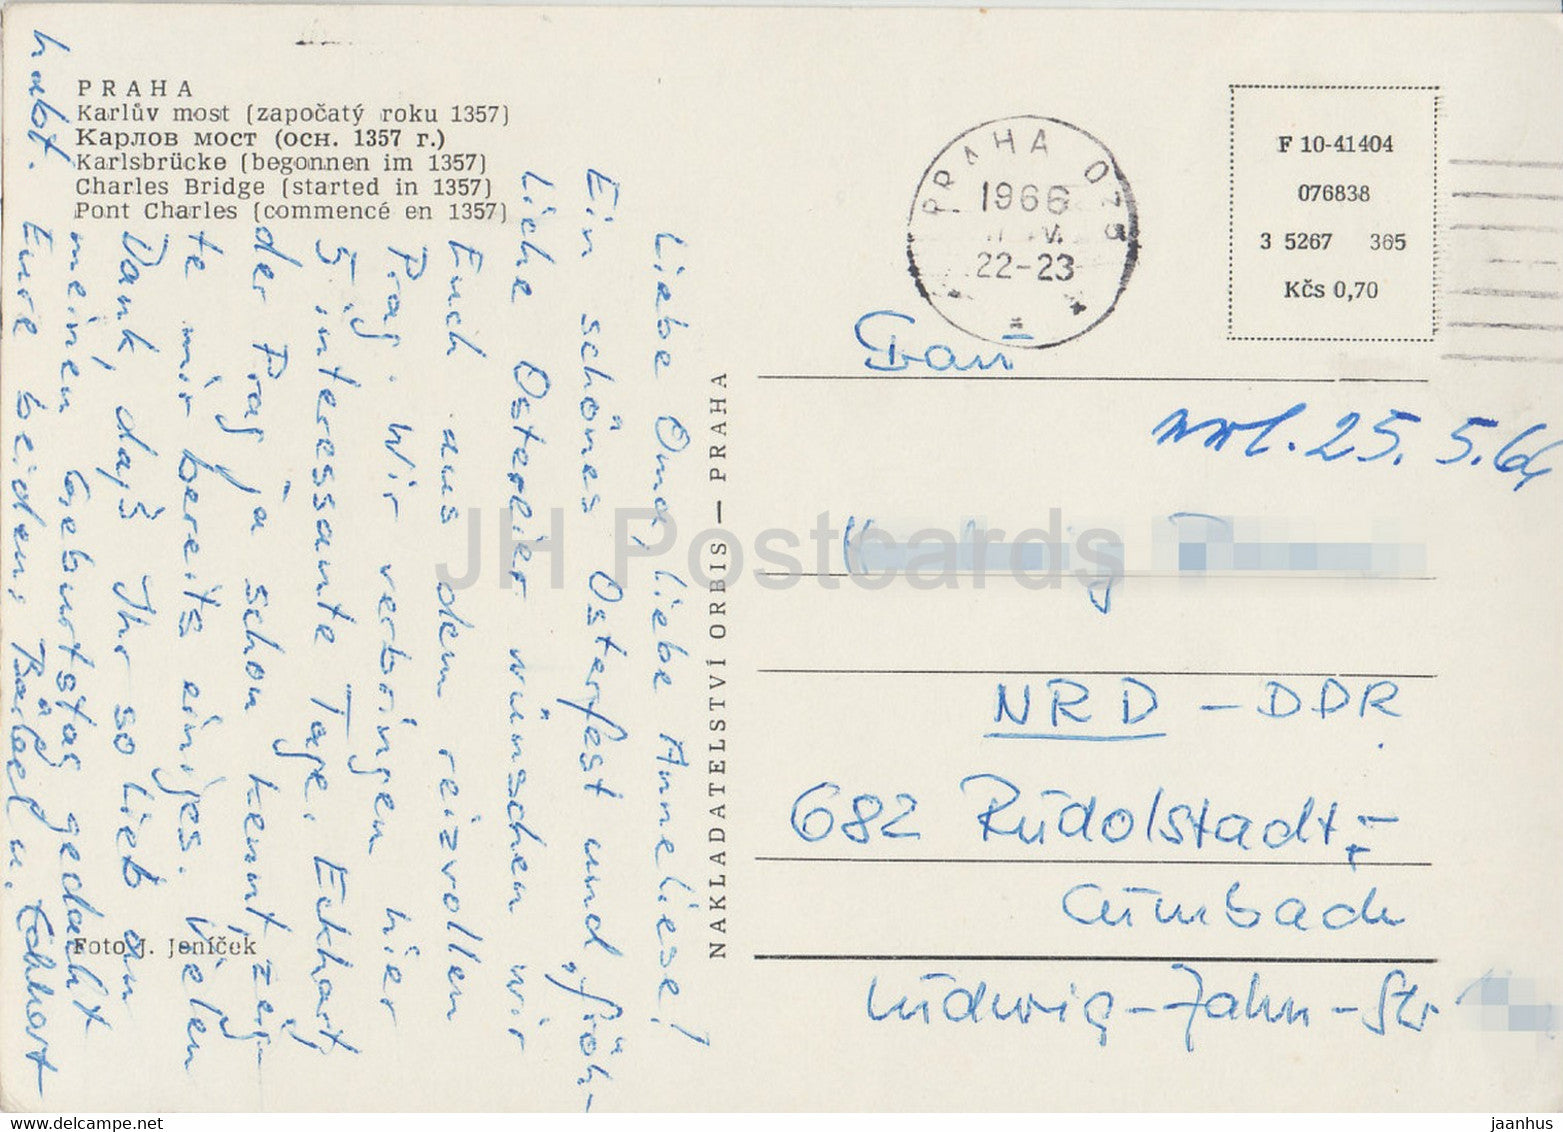 PRAHA
Karlův most (započatý roku 1357)
Карлов мост (осн. 1357 г.)
Karlsbrücke (begonnen im 1357)
Charles Bridge (started in 1357)
Pont Charles (commencé en 1357)
Liebe Oma, liebe Anneliese!
Ein schönes Osterfest und „fröh-
liche Ostereier wünschen wir
Euch aus dem reizvollen
Prag. Wir verbringen hier
5 interessante Tage. Eckhart,
der Prag ja schon kennt, zeig-
te mir bereits einiges. Vielen
Dank, daß Ihr so lieb an
meinen Geburtstag gedacht
habt. Eure beiden: Bärbel u. Eckhart
Foto J. Jeníček
NAKLADATELSTVÍ ORBIS — PRAHA
PRAHA 075
1966
22-23
F 10-41404
076838
3 5267 365
Kčs 0,70
Frau
25. 5.
NRD - DDR
682 Rudolstadt -
Cumbach
Ludwig-Jahn-Str
JH Postcards
delcampe.net
jaanhus